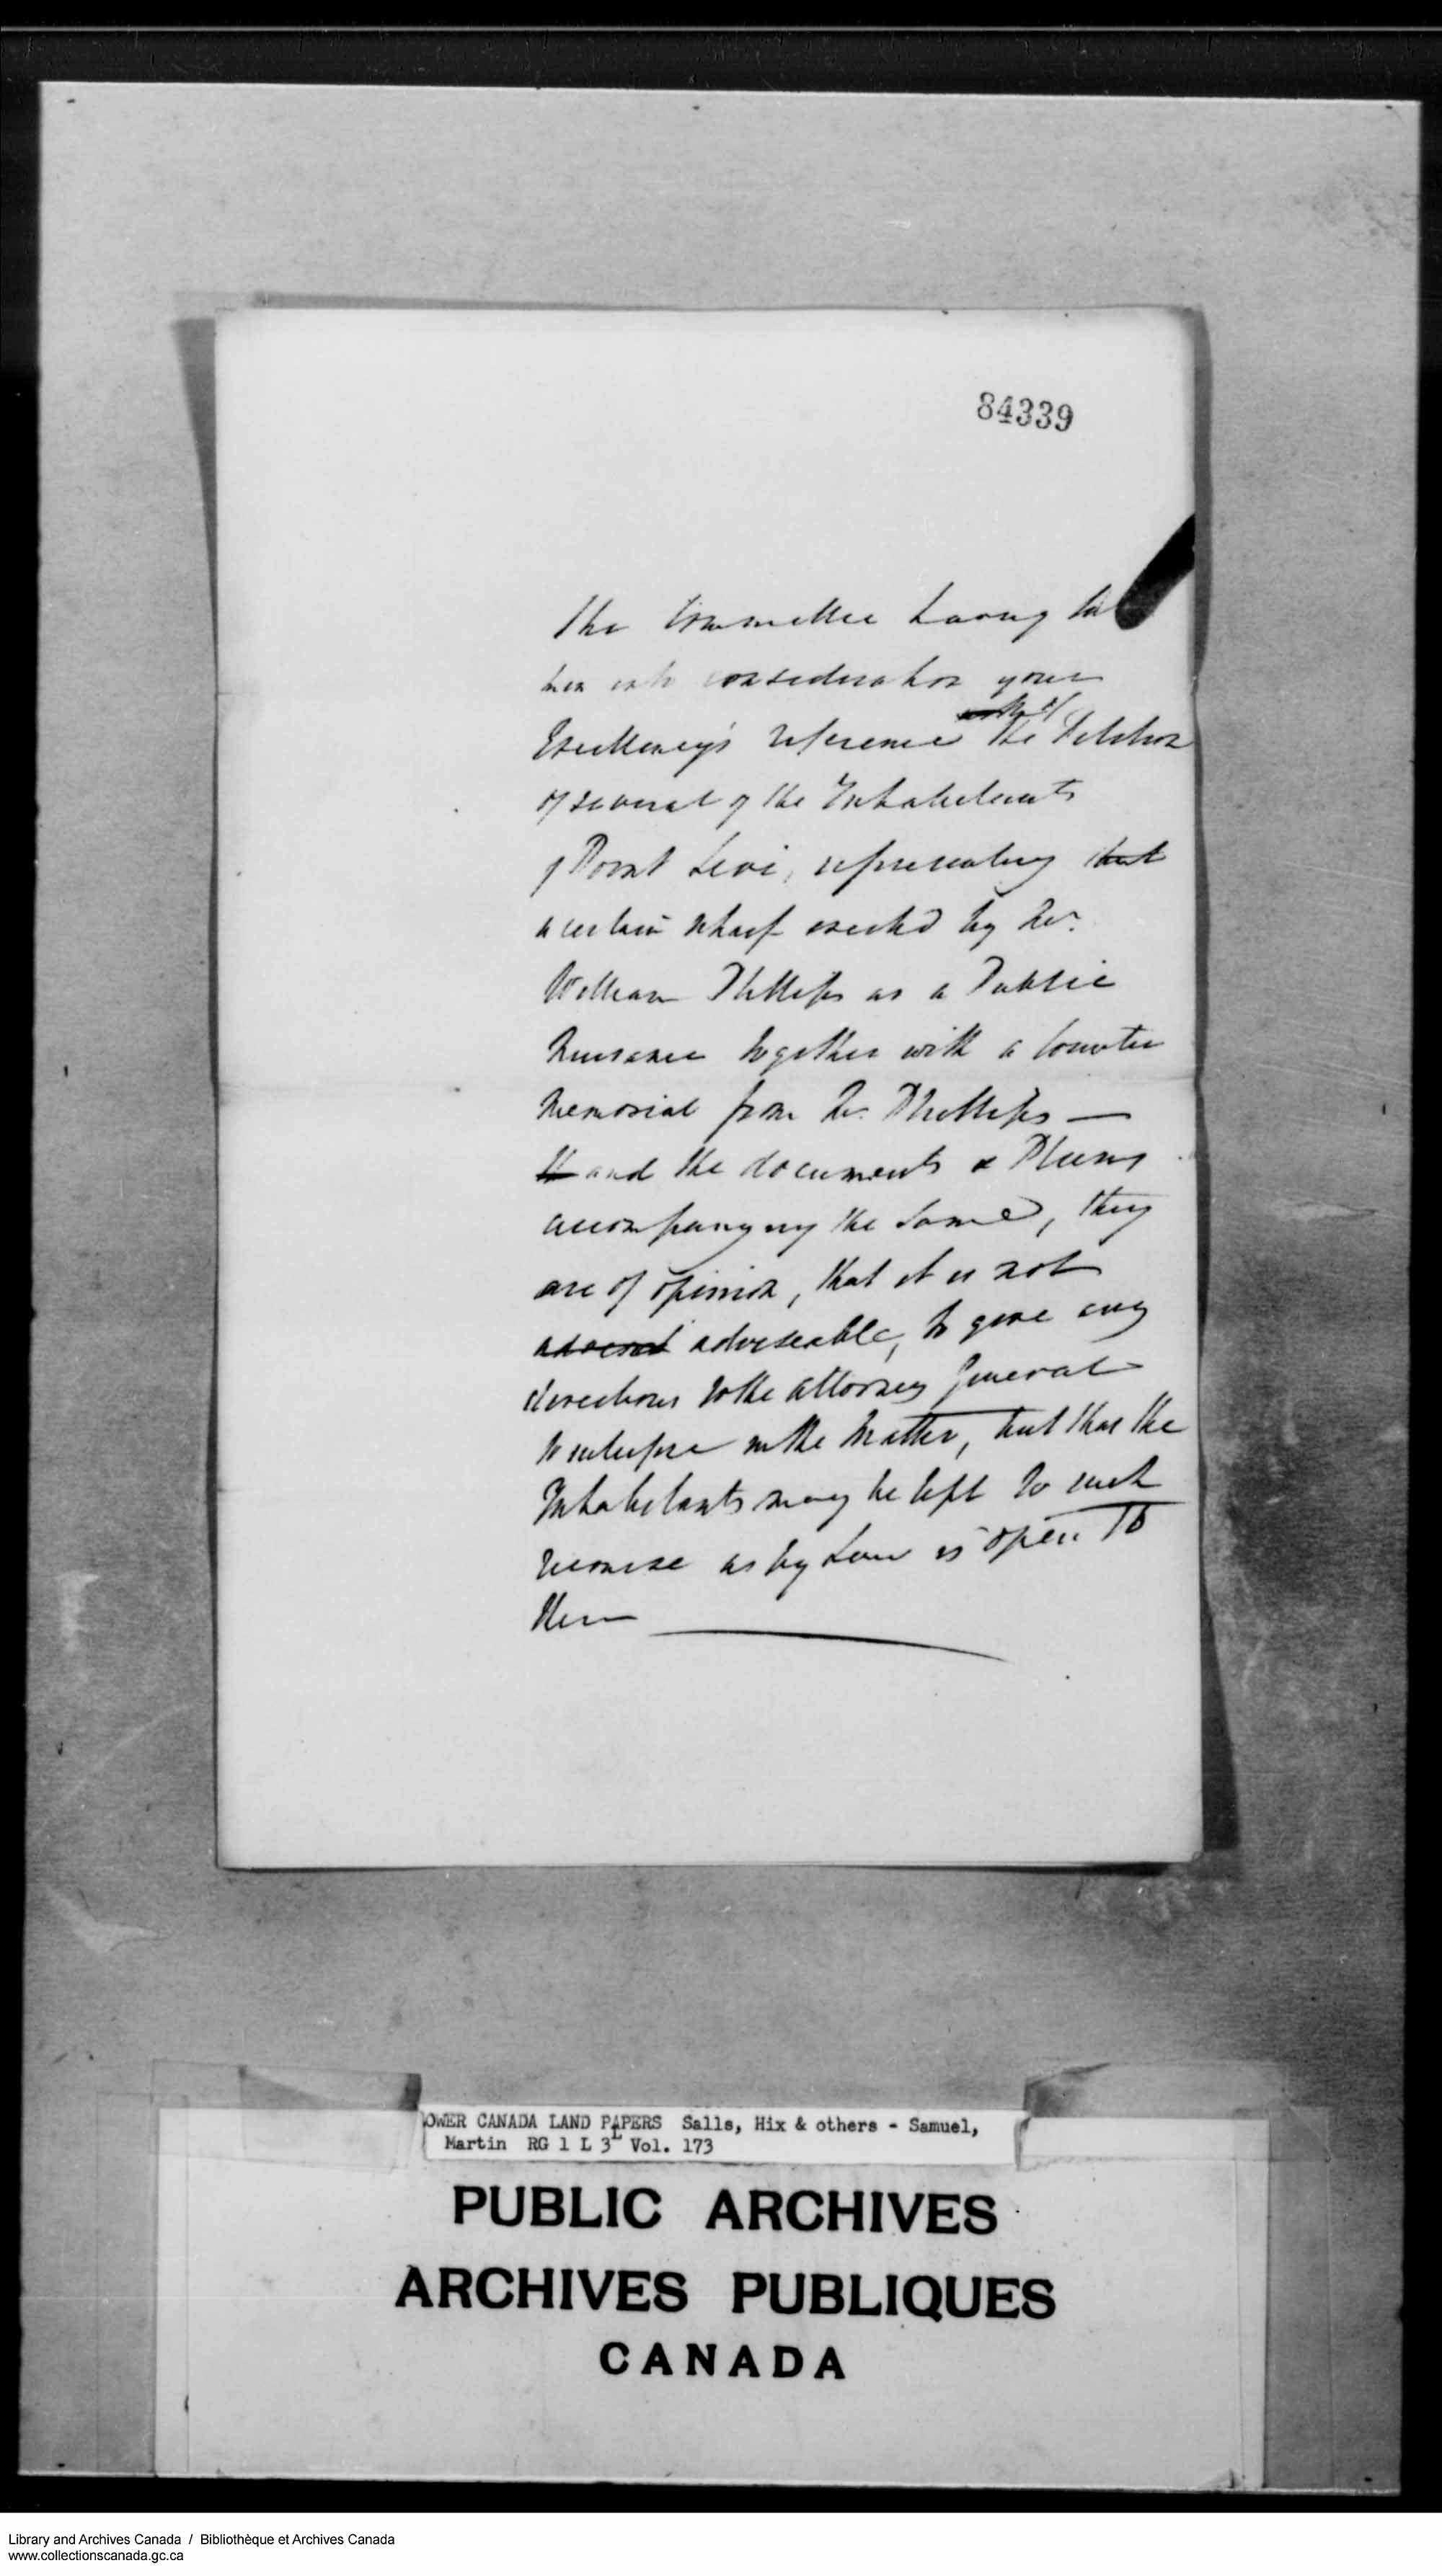 84339
The Committee having ta
ken into consideration your
Excellency's reference of the Petition
of several of the Inhabitants
of Point Levi, representing that
a certain wharf erected by Mr.
William Phillips as a Public
Nuisance together with a counter
Memorial from Mr. Phillips —
and the documents & Plans
accompanying the same, they
are of opinion, that it is not
adviseable, to give any
directions to the Attorney General
to interfere in the matter, but that the
Inhabitants may be left to such
recourse as by Law is open to
them
OWER CANADA LAND PAPERS Salls, Hix & others - Samuel,
Martin RG 1 L 3L Vol. 173
PUBLIC ARCHIVES
ARCHIVES PUBLIQUES
CANADA
Library and Archives Canada / Bibliothèque et Archives Canada
www.collectionscanada.gc.ca